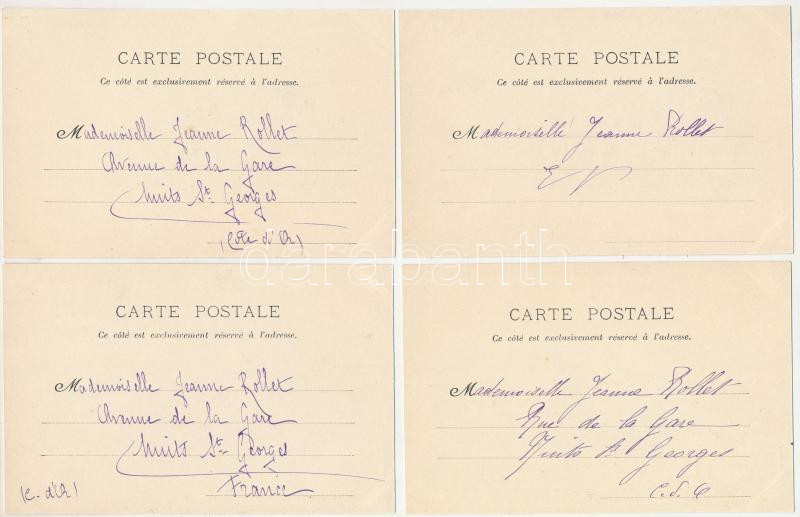 CARTE POSTALE
Ce côté est exclusivement réservé à l'adresse.
Mademoiselle Jeanne Rollet
Avenue de la Gare
Nuits St. Georges
(Côte d'Or)
CARTE POSTALE
Ce côté est exclusivement réservé à l'adresse.
Mademoiselle Jeanne Rollet
E V
CARTE POSTALE
Ce côté est exclusivement réservé à l'adresse.
Mademoiselle Jeanne Rollet
Avenue de la Gare
Nuits St. Georges
(C. d'Or)
France
CARTE POSTALE
Ce côté est exclusivement réservé à l'adresse.
Mademoiselle Jeanne Rollet
Rue de la Gare
Nuits St Georges
darabanth